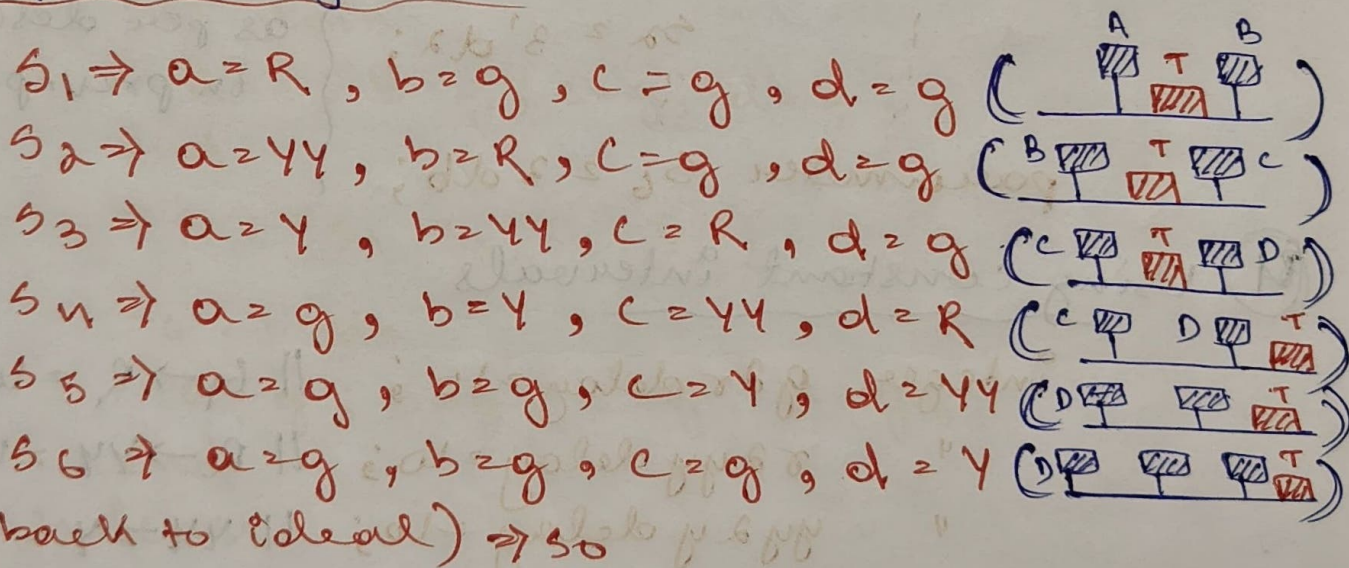 S1 ⇒ a = R, b = g, c = g, d = g ( A T B )
S2 ⇒ a = YY, b = R, C = g, d = g ( B T C )
S3 ⇒ a = Y, b = YY, C = R, d = g ( C T D )
S4 ⇒ a = g, b = Y, C = YY, d = R ( C D T )
S5 ⇒ a = g, b = g, C = Y, d = YY ( D T )
S6 ⇒ a = g, b = g, C = g, d = Y ( D T )
back to ideal) ⇒ S0